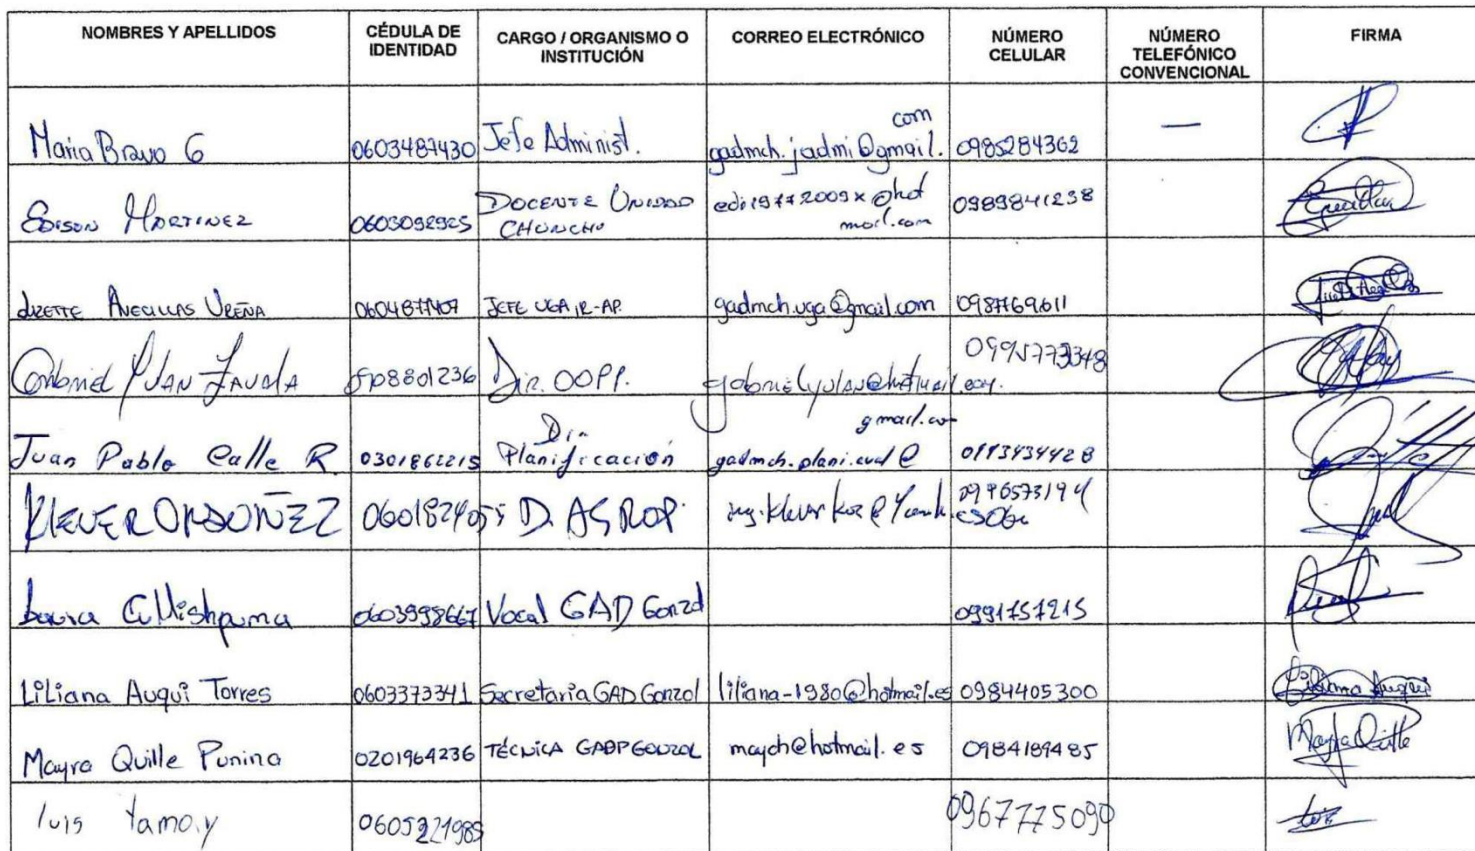 NOMBRES Y APELLIDOS
CÉDULA DE
IDENTIDAD
CARGO / ORGANISMO O
INSTITUCIÓN
CORREO ELECTRÓNICO
NÚMERO
CELULAR
NÚMERO
TELEFÓNICO
CONVENCIONAL
FIRMA
Maria Bravo G
0603487430
Jefe Administ.
com
gadmch.jadmi@gmail.
0985284362
—
Edison Martinez
0603092925
Docente Unidad
Chunchi
@hot
mail.com
0989841238
Avecillas Ureña
Jefe UGA
gadmch.uga@gmail.com
098769611
Gabriel Yulan Zavala
0908801236
Dir. OOPP.
0995773348
Juan Pablo Calle R.
0301862215
Dir.
Planificación
gmail.co
gadmch.plani.eval@
KLEVER ORDOÑEZ
D. AGROP.
0603998667
Vocal GAD Gonzol
0991757215
Liliana Auqui Torres
0603373341
Secretaria GAD Gonzol
liliana-1980@hotmail.es
0984405300
Liliana Auqui
Mayra Quille Punina
0201964236
TÉCNICA GADP GONZOL
maych@hotmail.es
0984189485
Mayra Quille
luis
0605221989
0967775090